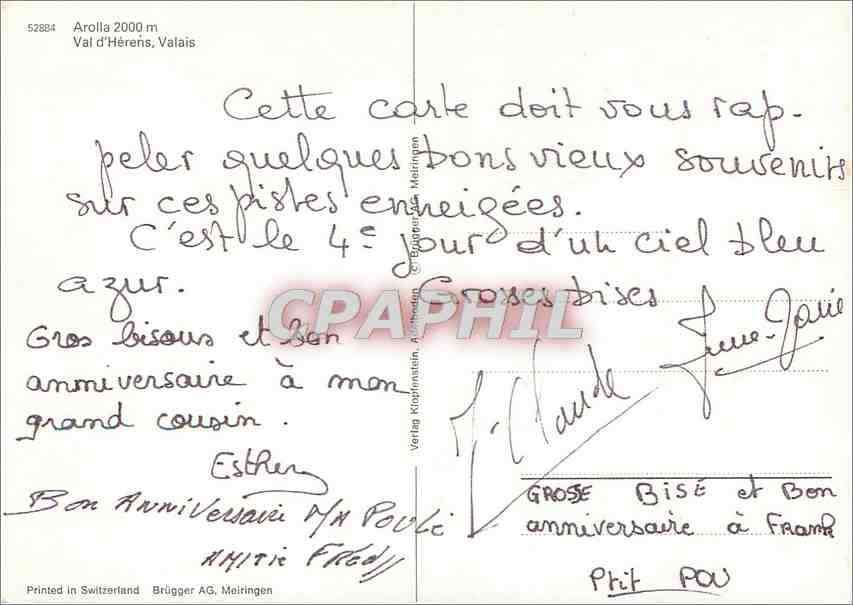 52884 Arolla 2000 m
Val d'Hérens, Valais
Cette carte doit vous rap-
peler quelques bons vieux souvenirs
sur ces pistes enneigées.
C'est le 4e jour d'un ciel bleu
azur. Grosses bises
CPAPHIL
J-Claude Anne-Marie
Gros bisous et Bon
anniversaire à mon
grand cousin.
Esther
Bon Anniversaire MA Poule
AMITIE Fred
GROSSE BISE et Bon
anniversaire à Frank
Ptit POU
Verlag Klopfenstein, Adelboden © Brügger AG, Meiringen
Printed in Switzerland Brügger AG, Meiringen